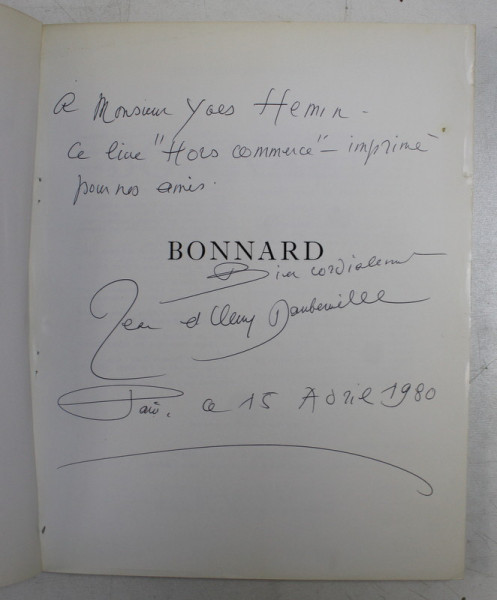 A Monsieur Yves Hemin.
Ce livre "Hors commerce" - imprimé
pour nos amis.
BONNARD
Bien cordialement
Jean et Henry Dauberville
Paris, ce 15 Avril 1980